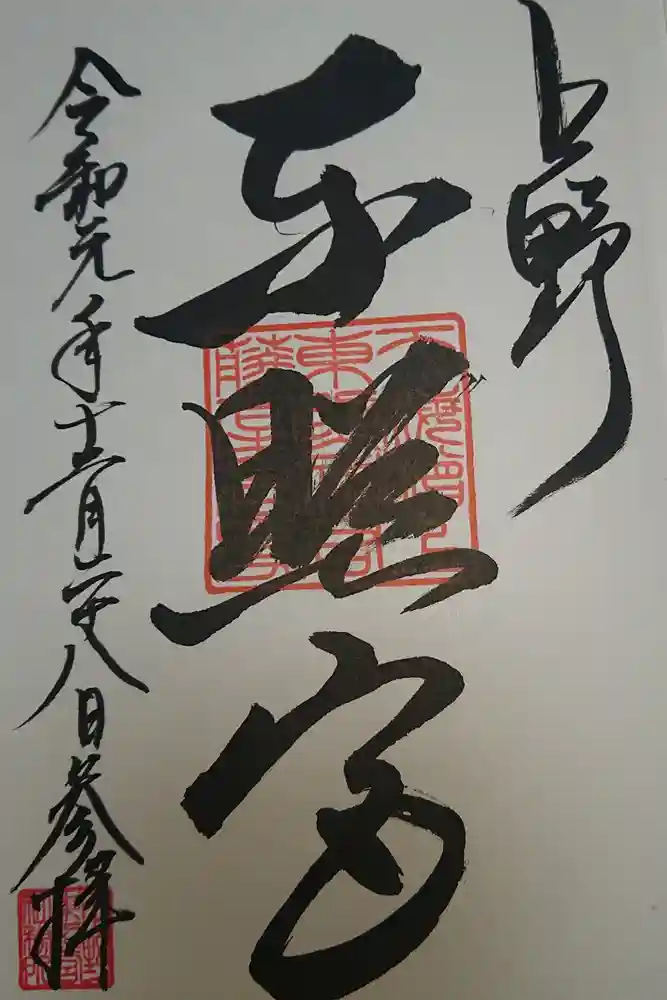 上野
東照宮
令和元年十二月二十八日参拝